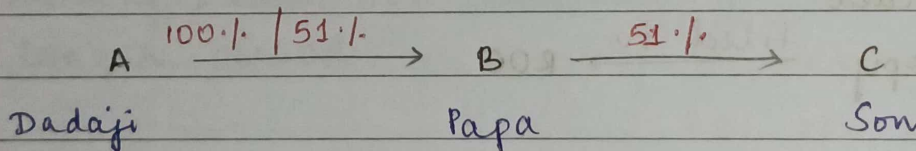 A 100% | 51% → B 51% → C
Dadaji Papa Son